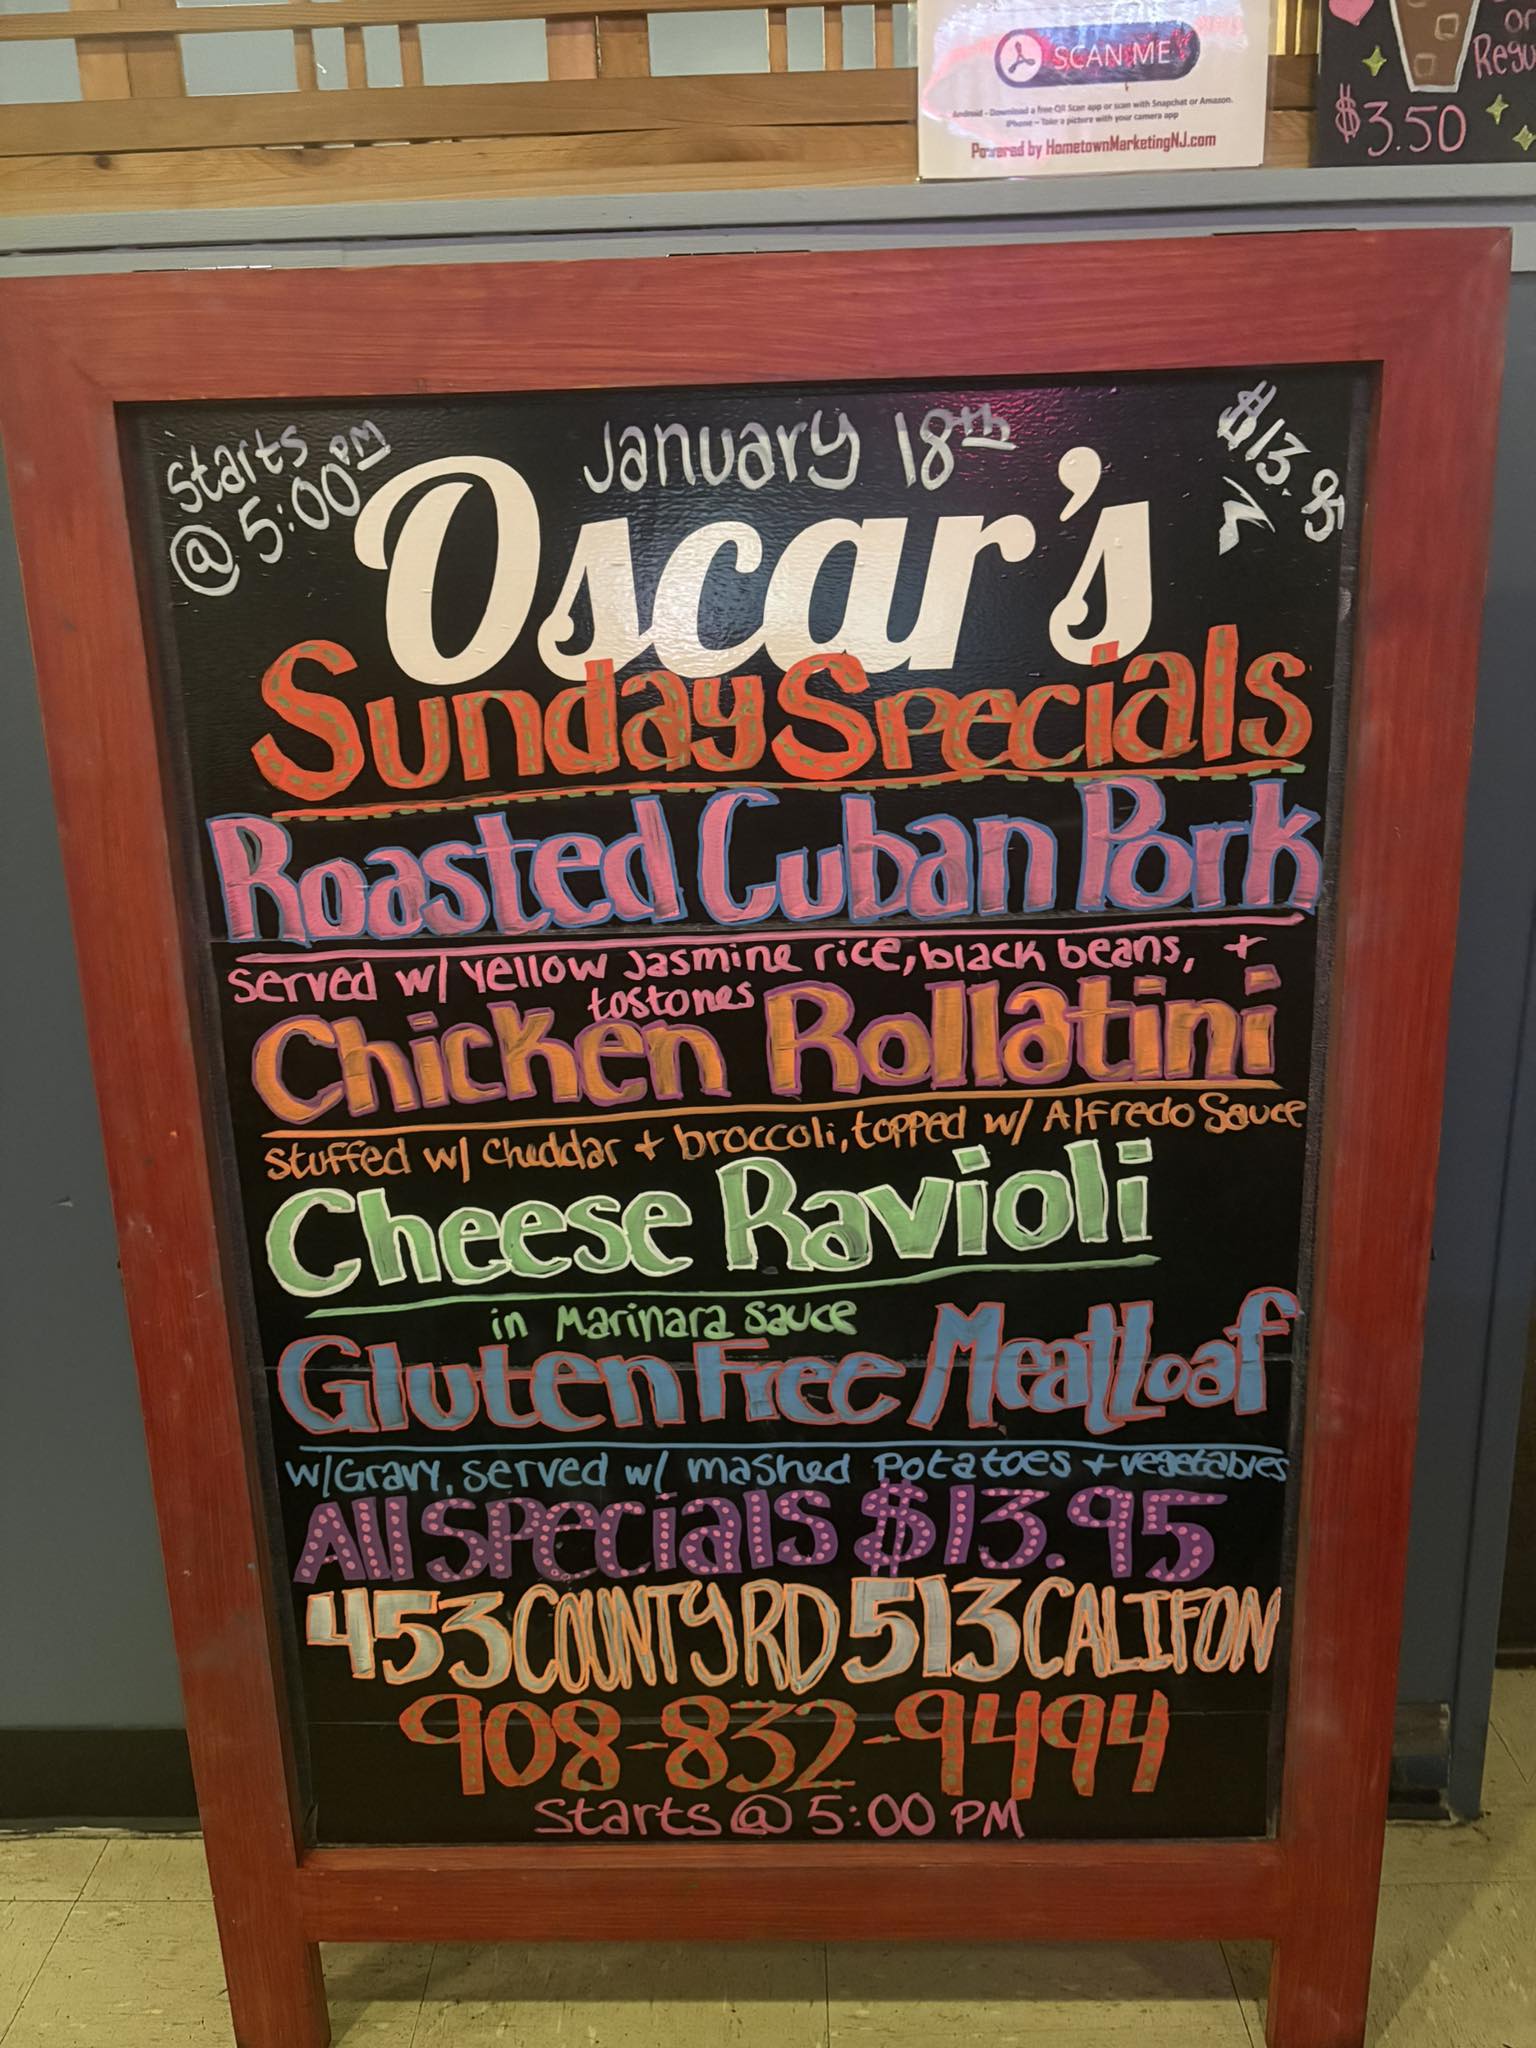 SCAN ME
Android - Download a free QR Scan app or scan with Snapchat or Amazon.
iPhone - Take a picture with your camera app
Powered by HometownMarketingNJ.com
or
$3.50
Starts
@ 5:00 PM
January 18th
$13.95
Oscar's
Sunday Specials
Roasted Cuban Pork
served w/ yellow jasmine rice, black beans, +
tostones
Chicken Rollatini
stuffed w/ cheddar + broccoli, topped w/ Alfredo Sauce
Cheese Ravioli
in Marinara sauce
Gluten Free MeatLoaf
w/Gravy, served w/ mashed potatoes + vegetables
All Specials $13.95
453 COUNTY RD 513 CALIFON
908-832-9494
Starts @ 5:00 PM